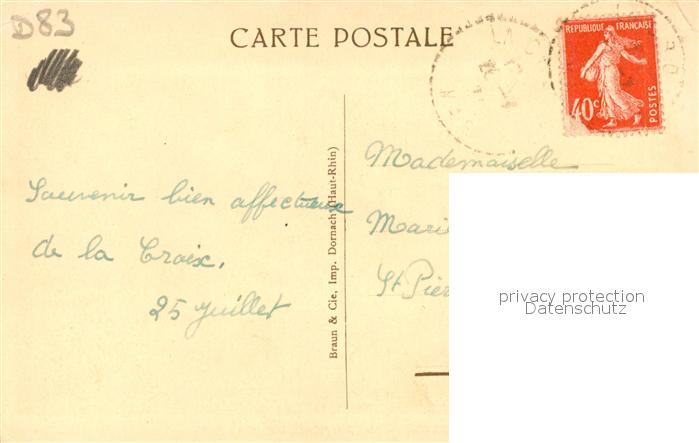 D83
CARTE POSTALE
REPUBLIQUE FRANÇAISE
40c
POSTES
Souvenir bien affectueux
de la Croix.
25 juillet
Braun & Cie, Imp. Dornach (Haut-Rhin)
Mademoiselle
Marie
St Pier
privacy protection
Datenschutz